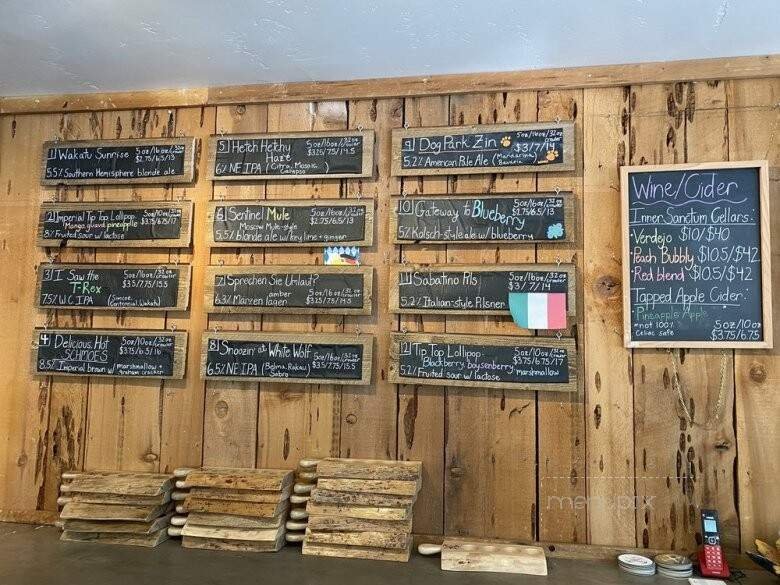 1 Wakatu Sunrise 5oz/16oz/32oz crowler
$2.75/6.5/13
5.5% Southern Hemisphere blonde ale
2 Imperial Tip Top Lollipop- 5oz/10oz/32oz
Mango guava pineapple $3.75/6.75/17
8% Fruited sour w/ lactose
3 I Saw the 5oz/16oz/32oz crowler
T-Rex $3.5/7.5/15.5
7.5% W.C. IPA (Simcoe, Centennial, Wakatu)
4 Delicious, Hot 5oz/10oz/32oz crowler
SCHMOES $3.75/6.5/16
8.5% Imperial brown w/ marshmallow + graham cracker
5 Hetch Hetchy 5oz/16oz/32oz crowler
Haze $3.25/7.5/14.5
6% NE IPA (Citra, Mosaic, Calypso)
6 Sentinel Mule 5oz/16oz/32oz
Moscow Mule-style $2.75/6.5/13
5.5% blonde ale w/ key lime + ginger
7 Sprechen Sie Urlauf? 5oz/16oz/32oz crowler
amber $3.25/7.5/14.5
6.3% Marzen lager
8 Snoozin' at White Wolf 5oz/16oz/32oz crowler
6.5% NE IPA (Belma, Rakau, Sabro) $3.5/7.5/15.5
9 Dog Park Zin 5oz/16oz/32oz crowler
$3/7/14
5.2% American Pale Ale (Mandarina, Bavaria)
10 Gateway to Blueberry 5oz/16oz/32oz crowler
$2.75/6.5/13
5% Kolsch-style ale w/ blueberry
11 Sabatino Pils 5oz/16oz/32oz crowler
$3/7/14
5.2% Italian-style Pilsner
12 Tip Top Lollipop- 5oz/16oz/32oz crowler
Blackberry, boysenberry $3.75/6.75/17
5.2% Fruited sour w/ lactose marshmallow
Wine/Cider
Inner Sanctum Cellars:
• Verdejo $10/$40
• Peach Bubbly $10.5/$42
• Red blend $10.5/$42
Tapped Apple Cider:
Pineapple Apple
*not 100% Celiac safe 5oz/10oz
$3.75/6.75
menupix